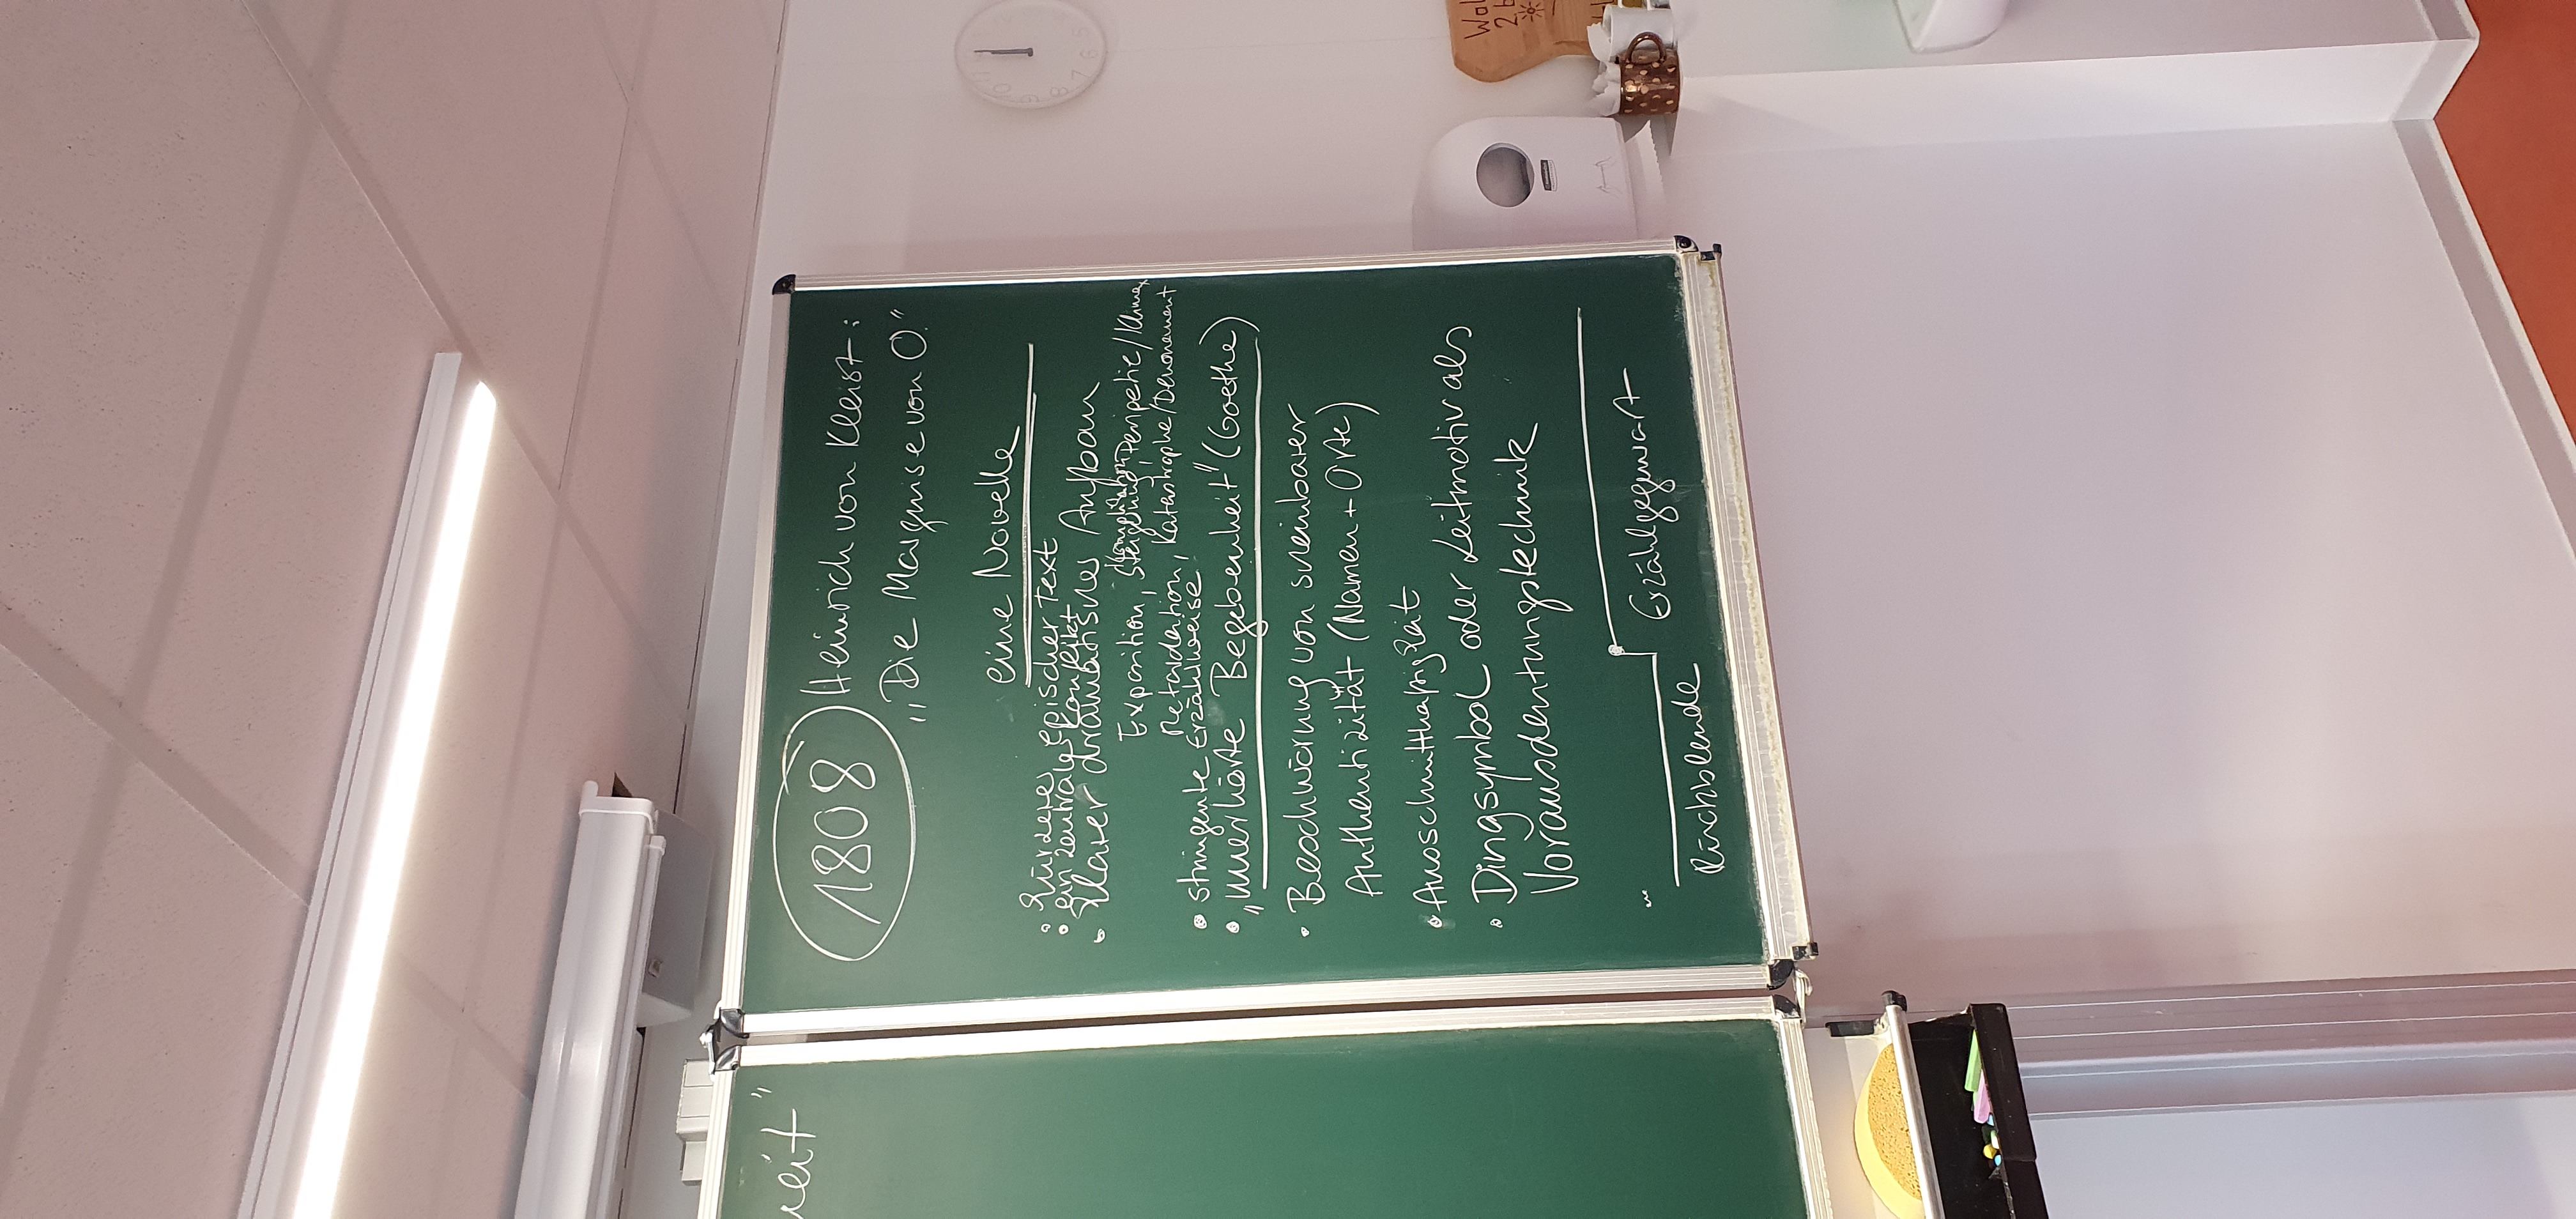 eit"
1808
Heinrich von Kleist:
„Die Marquise von O."
eine Novelle
• kürzerer epischer Text
• ein zentraler Konflikt
• klarer dramatischer Aufbau
Komplikation
Exposition, Steigerung, Peripetie/Klimax
Retardation, Katastrophe/Denouement
• stringente Erzählweise
• „unerhörte Begebenheit" (Goethe)
• Beschwörung von scheinbarer
Authentizität (Namen + Orte)
• Ausschnitthaftigkeit
• Dingsymbol oder Leitmotiv als
Vorausdeutungstechnik
Erzählgegenwart
Rückblende
Wal
2.